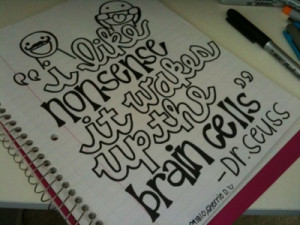 "i like
nonsense
it wakes
up the
brain cells"
-Dr. Seuss